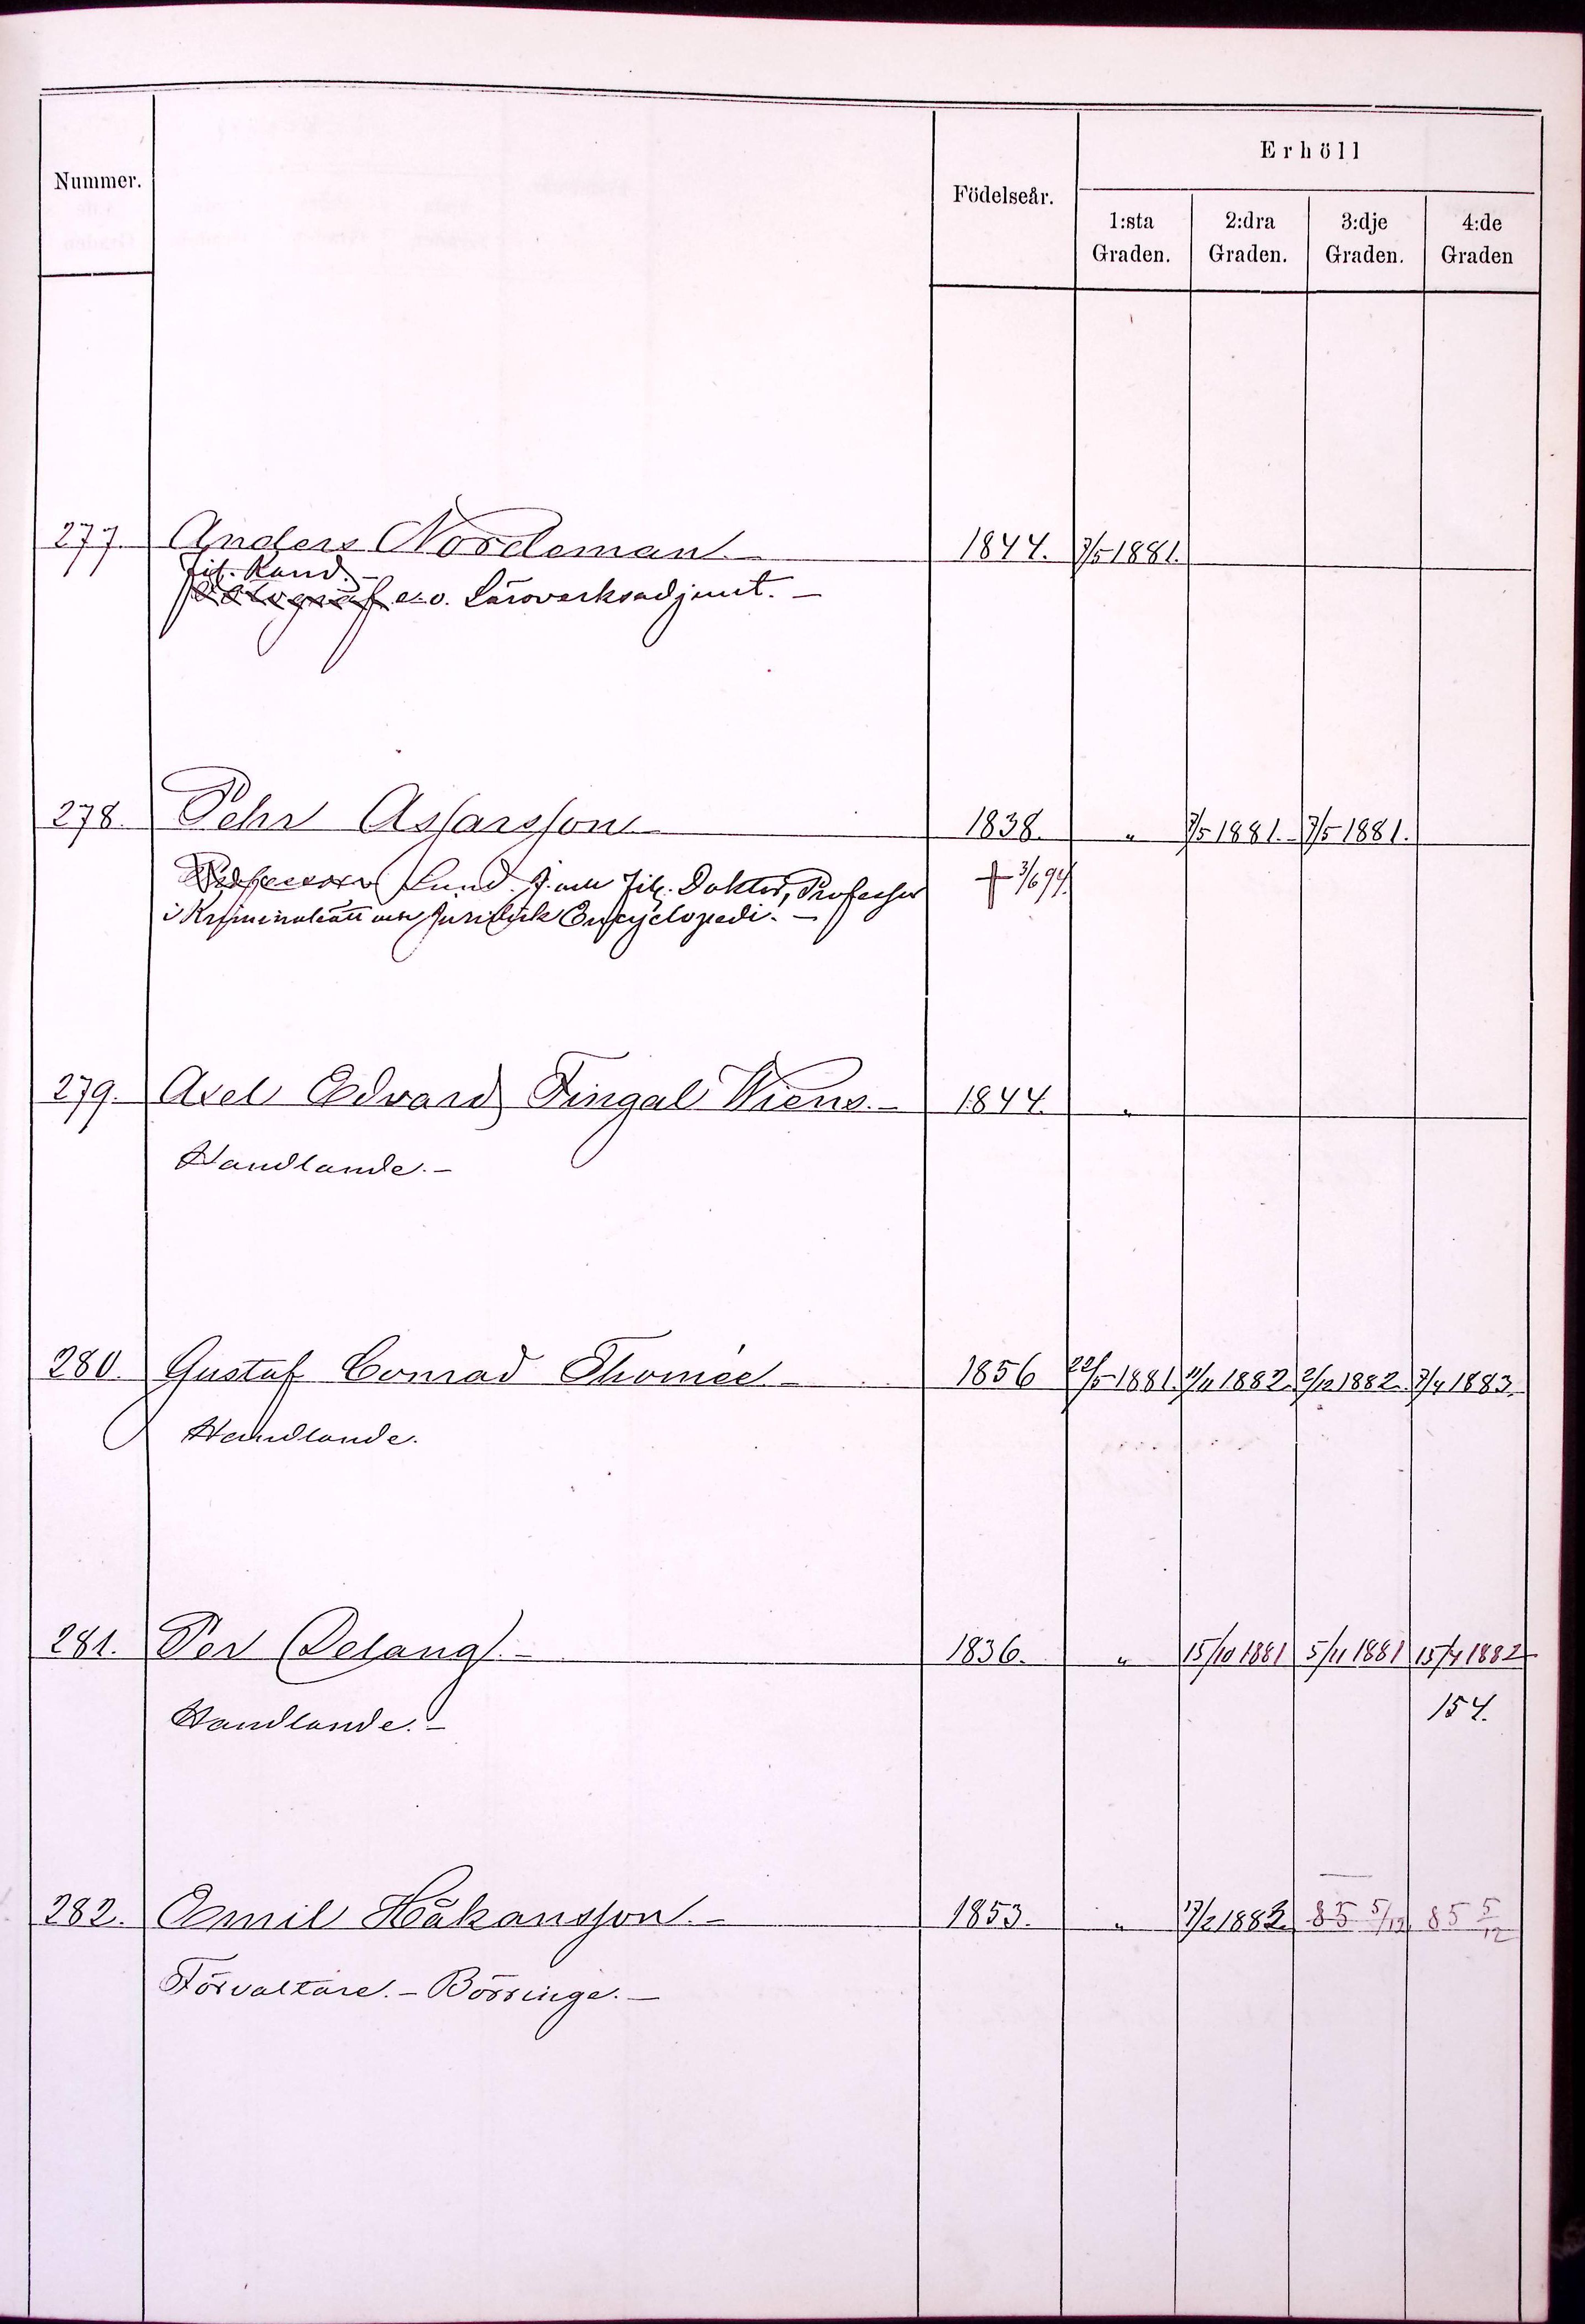 Erhöll
Nummer. Födelseår.
1:sta 2:dra 3:dje 4:de
Graden. Graden. Graden. Graden
277. Anders Nordeman. 1844. 7/5 1881.
Fil. Kand.
Fotograf e. o. Läroverksadjunt. –
278. Pehr Assarsson 1838. " 7/5 1881. 7/5 1881.
Professor Lund. J. och Fil. Doktor, Professor † 3/6 94.
i Kriminalrätt och Juridisk Encyclopedi. –
279. Axel Edvard Fingal Wiens. – 1844. "
Handlande. –
280. Gustaf Conrad Thomée – 1856 22/5 1881. 11/11 1882. 2/12 1882. 7/4 1883.
Handlande.
281. Per Delang. – 1836. " 15/10 1881 5/11 1881 15/4 1882
Handlande. – 154.
282. Emil Håkansson. – 1853. " 17/2 1883. 85 5/12 85 5/12
Förvaltare. – Börringe. –